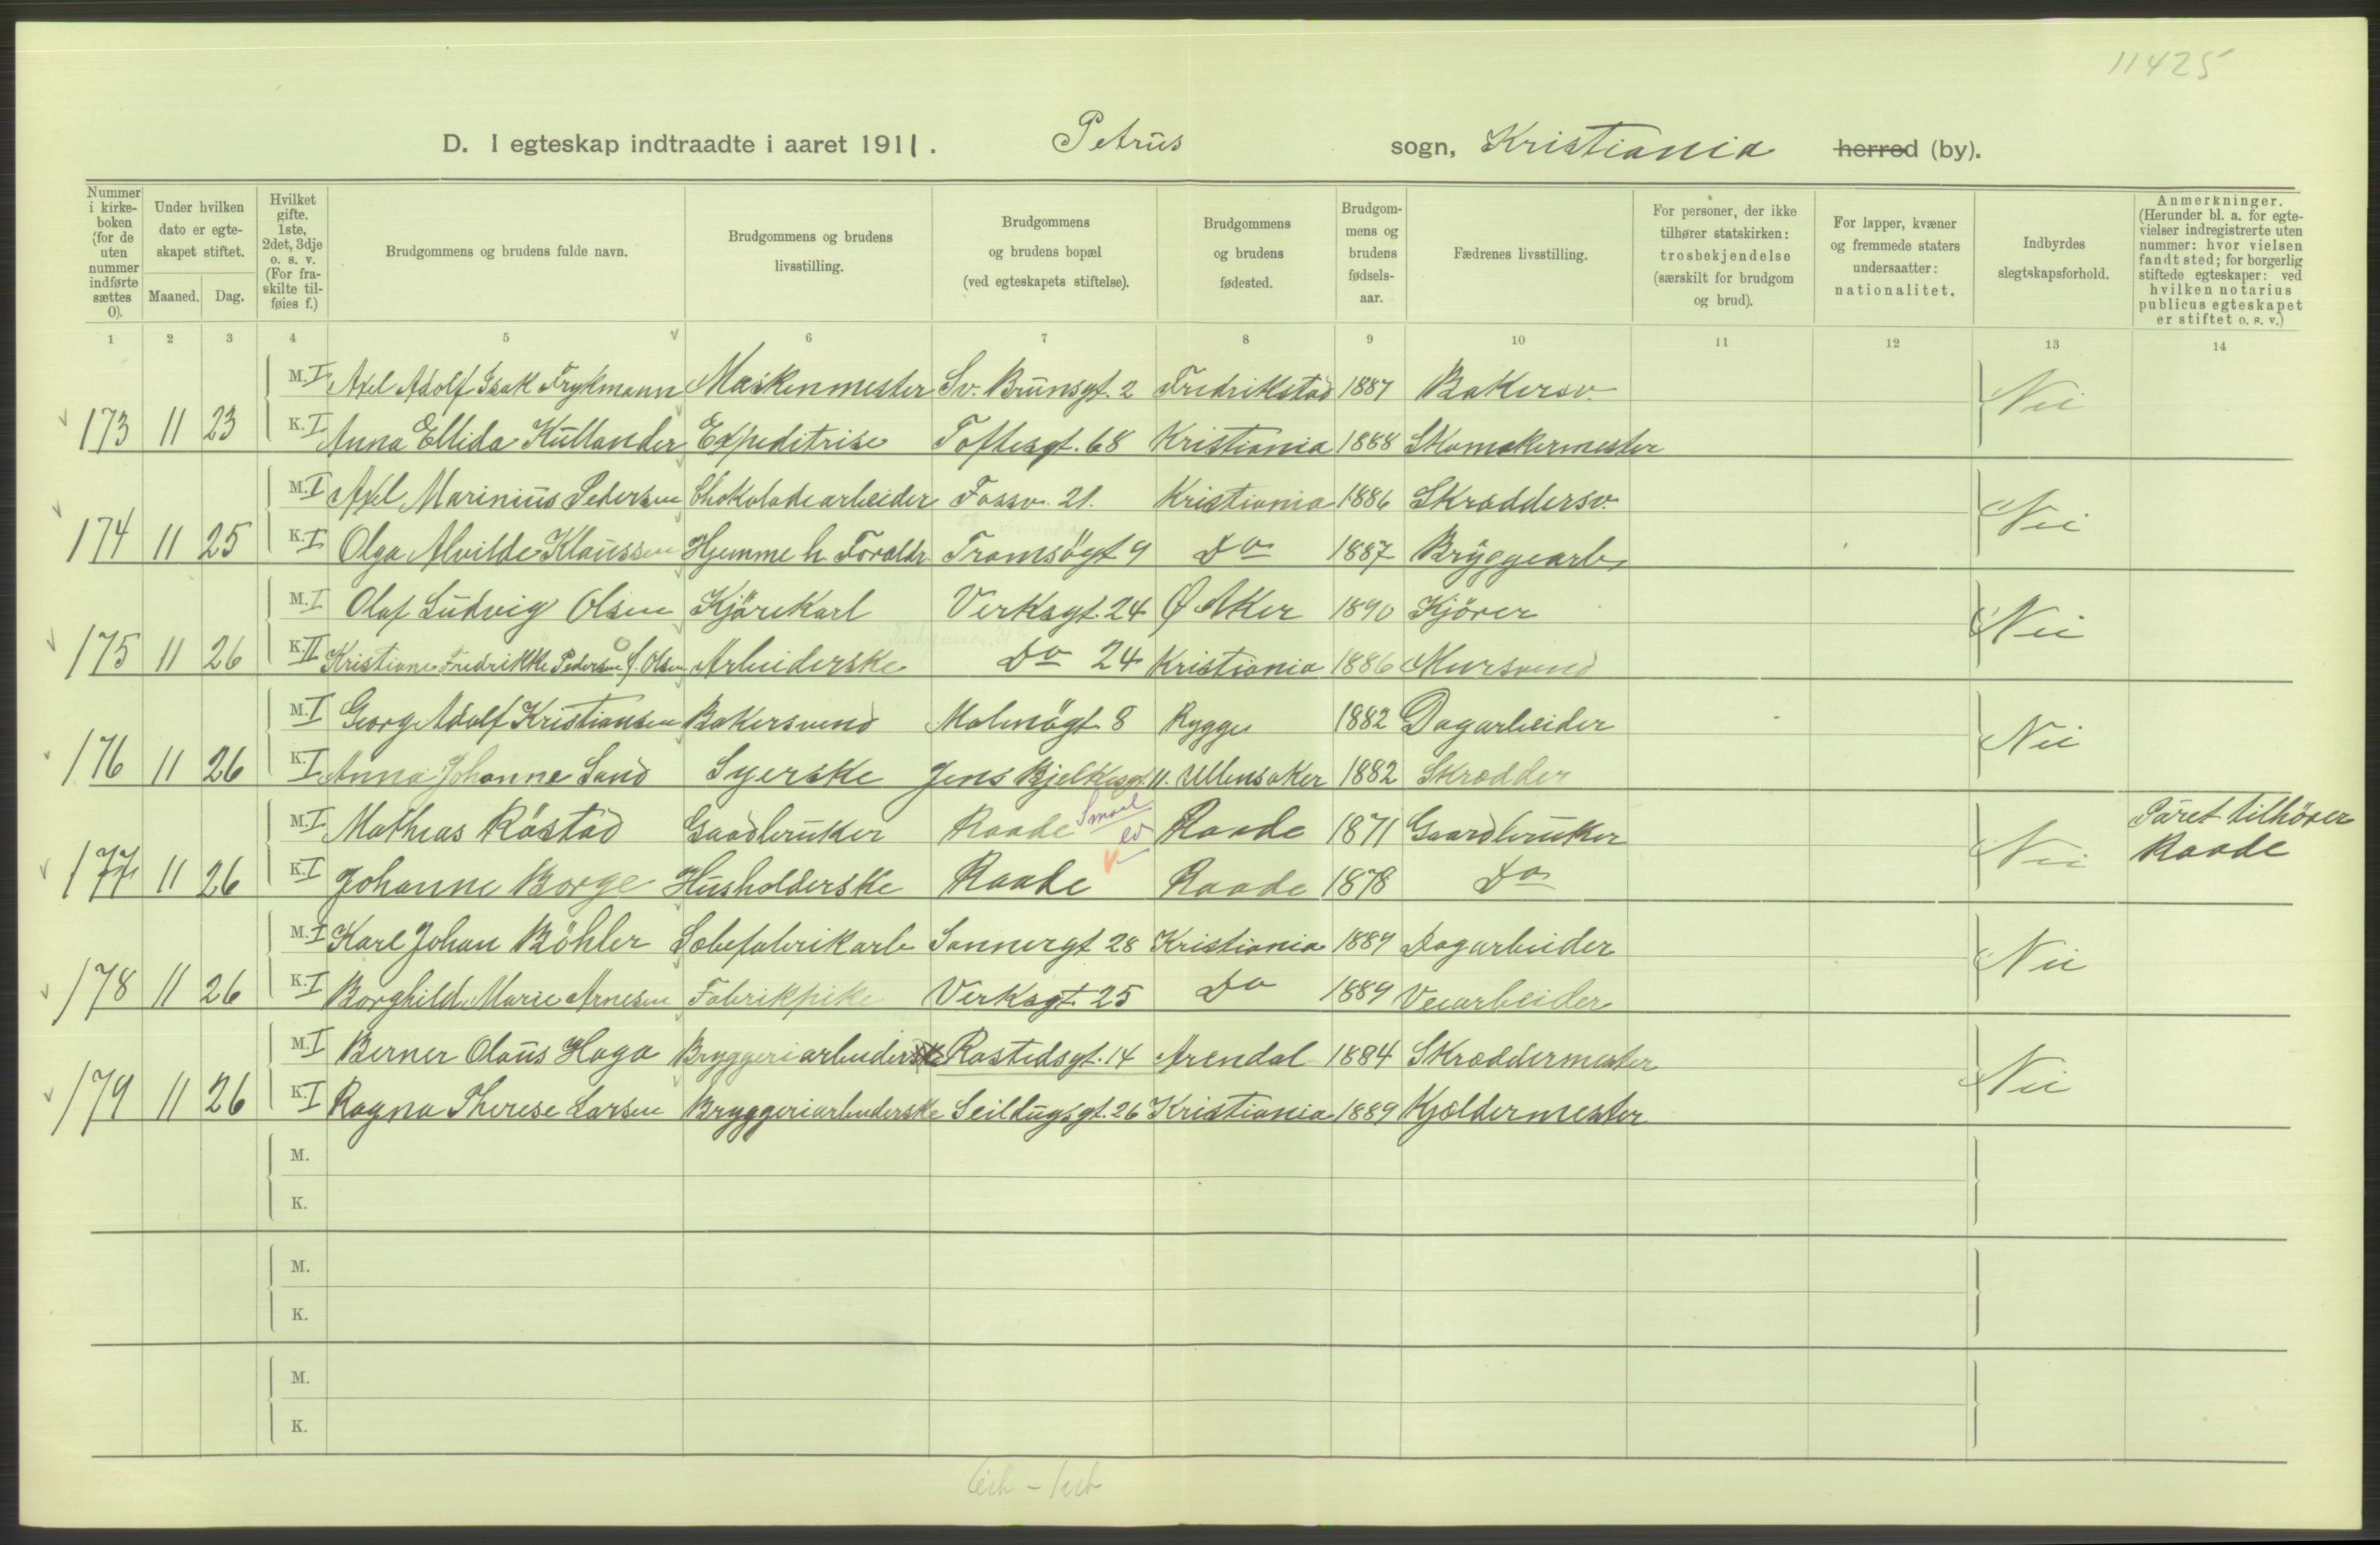 11425
D. I egteskap indtraadte i aaret 1911. Petrus sogn, Kristiania herred (by).
Nummer i kirkeboken (for de uten nummer indførte sættes 0).
Under hvilken dato er egteskapet stiftet.
Maaned. Dag.
Hvilket gifte. 1ste, 2det, 3dje o. s. v. (For fraskilte tilføies f.)
Brudgommens og brudens fulde navn.
Brudgommens og brudens livsstilling.
Brudgommens og brudens bopæl (ved egteskapets stiftelse).
Brudgommens og brudens fødested.
Brudgommens og brudens fødselsaar.
Fædrenes livsstilling.
For personer, der ikke tilhører statskirken: trosbekjendelse (særskilt for brudgom og brud).
For lapper, kvæner og fremmede staters undersaatter: nationalitet.
Indbyrdes slegtskapsforhold.
Anmerkninger. (Herunder bl. a. for egtevielser indregistrerte uten nummer: hvor vielsen fandt sted; for borgerlig stiftede egteskaper: ved hvilken notarius publicus egteskapet er stiftet o. s. v.)
1 2 3 4 5 6 7 8 9 10 11 12 13 14
M. I Axel Adolf Isak Frykmann Maskenmester Sv. Brunsgt. 2 Fredrikstad 1887 Bakersv. Nei
173 11 23 K. I Anna Ellida Kullander Expeditrise Toftesgt. 68 Kristiania 1888 Skomakermester
M. I Axel Marinius Pedersen Chokoladearbeider Fossv. 21. Kristiania 1886 Skræddersv. Nei
174 11 25 K. I Olga Alvilde Klaussen Hjemme h. Foraldr. Tromsögt 9 Do 1887 Bryggearb.
M. I Olaf Ludvig Olsen Kjörekarl Verksgt. 24 Ø Aker 1890 Kjörer Nei
175 11 26 K. II Kristiane Fredrikke Pedersen f. Olsen Arbeiderske Do 24 Kristiania 1886 Mursvend
M. I Georg Adolf Kristiansen Bakersvend Malmögt. 8 Rygge 1882 Dagarbeider Nei
176 11 26 K. I Anna Johanne Sand Syerske Jens Bjelkesgt. 11. Ullensaker 1882 Skrædder
M. I Mathias Råstad Gaadbruker Raade Smaal Raade 1871 Gaardbruker Nei Paret tilhörer Raade
177 11 26 K. I Johanne Borge Husholderske Raade Raade 1878 Do
M. I Karl Johan Böhler Sæbefabrikarb Sannergt 28 Kristiania 1889 Dagarbeider Nei
178 11 26 K. I Borghild Marie Arnesen Fabrikpike Verksgt. 25 Do 1889 Veiarbeider
M. I Berner Olaus Haga Bryggeriarbeiderske Rostedsgt. 14 Arendal 1884 Skræddermester Nei
179 11 26 K. I Ragna Therese Larsen Bryggeriarbeiderske Seildugsgt. 26 Kristiania 1889 Kjeldermester
M.
K.
M.
K.
M.
K.